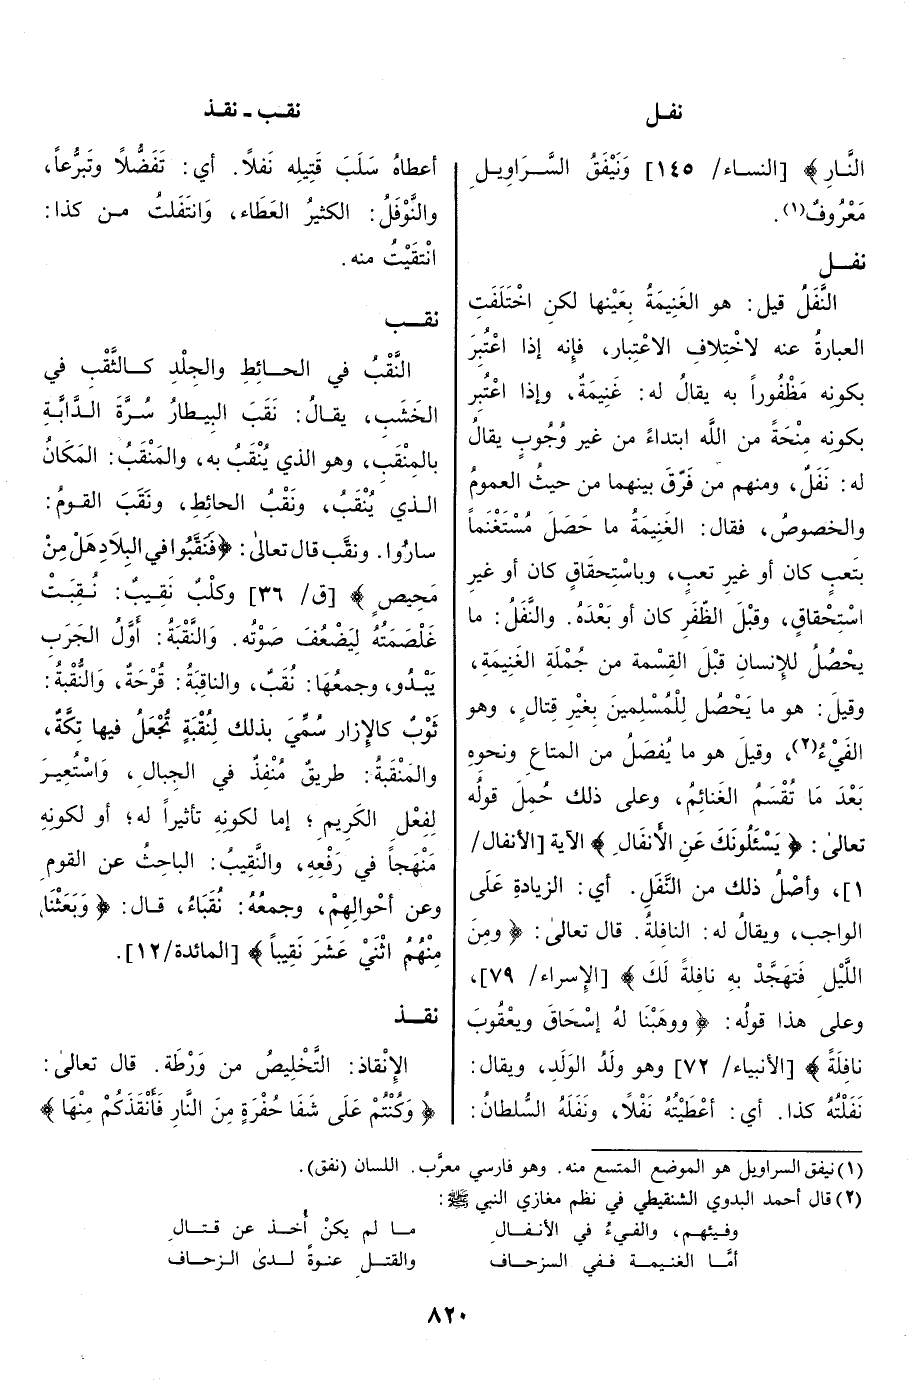 نفل
نقب ـ نقذ
النَّارِ ﴾ [النساء/ ١٤٥] وَنَيْفَقُ السَّرَاوِيلِ
مَعْرُوفٌ(١).
نفل
النَّفَلُ قيل: هو الغَنِيمَةُ بعَيْنِها لكن اخْتَلَفَتِ
العبارةُ عنه لاخْتِلافِ الاعْتِبار، فإنه إذا اعْتُبِرَ
بكونِه مَظْفُوراً به يقالُ له: غَنِيمَةٌ، وإذا اعْتُبِرَ
بكونِه مِنْحَةً من اللَّه ابتداءً من غير وُجُوبٍ يقالُ
له: نَفَلٌ، ومنهم من فَرَّقَ بينهما من حيثُ العمومُ
والخصوصُ، فقال: الغَنِيمَةُ ما حَصَلَ مُسْتَغْنَماً
بتَعبٍ كان أو غيرِ تعبٍ، وباسْتِحقاقٍ كان أو غيرِ
اسْتِحْقاقٍ، وقبْلَ الظَّفَرِ كان أو بَعْدَه. والنَّفَلُ: ما
يحْصُلُ للإِنسانِ قبْلَ القِسْمة من جُمْلَةِ الغَنِيمَة،
وقيلَ: هو ما يَحْصُل لِلْمُسْلِمينَ بِغَيْرِ قِتالٍ، وهو
الفَيْءُ(٢)، وقيلَ هو ما يُفصَلُ من المتاعِ ونحوِهِ
بَعْدَ مَا تُقْسَمُ الغَنائِمُ، وعلى ذلك حُمِلَ قولُه
تعالىٰ: ﴿ يَسْئَلُونَكَ عَنِ الأَنفَالِ ﴾ الآية [الأنفال/
١]، وأَصْلُ ذلك من النَّفْلِ. أي: الزيادةِ عَلَى
الواجب، ويقالُ له: النافلةُ. قال تعالىٰ: ﴿ ومِنَ
اللَّيْلِ فَتَهَجَّدْ بِهِ نافِلةً لَكَ ﴾ [الإِسراء/ ٧٩]،
وعلى هذا قولُه: ﴿ ووهَبْنَا لهُ إسْحَاقَ ويعْقُوبَ
نافِلَةً ﴾ [الأنبياء/ ٧٢] وهو ولَدُ الوَلَدِ، ويقال:
نَفَلْتُهُ كذا. أي: أعْطَيْتُهُ نَفْلاً، ونَفَلَهُ السُّلطانُ:
أعطاهُ سَلَبَ قَتِيلِه نَفلاً. أي: تَفَضُّلاً وتَبرُّعاً،
والنَّوْفَلُ: الكثيرُ العَطَاء، وَانتَفَلتُ من كذا:
انْتقَيْتُ منه.
نقب
النَّقْبُ في الحائطِ والجِلْدِ كالثَّقْبِ في
الخَشَبِ، يقالُ: نَقَبَ البيطارُ سُرَّةَ الدَّابَّةِ
بالمِنْقَبِ، وهو الذي يُنْقَبُ به، والمَنْقَبُ: المَكَانُ
الذي يُنْقَبُ، ونَقْبُ الحائطِ، ونَقَبَ القومُ:
سارُوا. ونقَّب قال تعالىٰ: ﴿فَنَقَّبُوا في البِلَادِ هَلْ مِنْ
مَحِيصٍ ﴾ [ق/ ٣٦] وكلْبٌ نَقِيبٌ: نُقِبَتْ
غَلْصَمَتُهُ لِيَضْعُفَ صَوْتُه. وَالنَّقْبَةُ: أَوَّلُ الجَرَبِ
يَبْدُو، وجمعُهَا: نُقَبٌ، والناقِبَةُ: قُرْحَةٌ، وَالنُّقْبَةُ:
ثَوْبٌ كالإِزارِ سُمِّيَ بذلك لِنُقْبَةٍ تُجْعَلُ فيها تِكَّةٌ،
والمَنْقَبَةُ: طريقٌ مُنْفِذٌ في الجبالِ، وَاسْتُعِيرَ
لِفِعْلِ الكَرِيم؛ إما لكونِهِ تأثيراً له؛ أو لكونِهِ
مَنْهَجاً في رَفْعِه، والنَّقِيبُ: الباحِثُ عن القومِ
وعن أَحْوالِهِمْ، وجمعُهُ: نُقَبَاءُ، قال: ﴿ وَبَعَثْنَا
مِنْهُمُ اثْنَيْ عَشَرَ نَقِيباً ﴾ [المائدة/١٢].
نقذ
الإِنْقاذ: التَّخْلِيصُ من وَرْطَة. قال تعالىٰ:
﴿ وَكُنْتُمْ عَلَى شَفَا حُفْرَةٍ مِنَ النَّارِ فَأَنْقَذَكُمْ مِنْهَا ﴾
(١) نيفق السراويل هو الموضع المتسع منه. وهو فارسي معرَّب. اللسان (نفق).
(٢) قال أحمد البدوي الشنقيطي في نظم مغازي النبي ﷺ:
وفيئهم، والفيءُ في الأنفالِ ما لم يكنْ أُخذ عن قتالِ
أمَّا الغنيمة ففي الزحاف والقتلِ عنوةً لدى الزحاف
٨٢٠